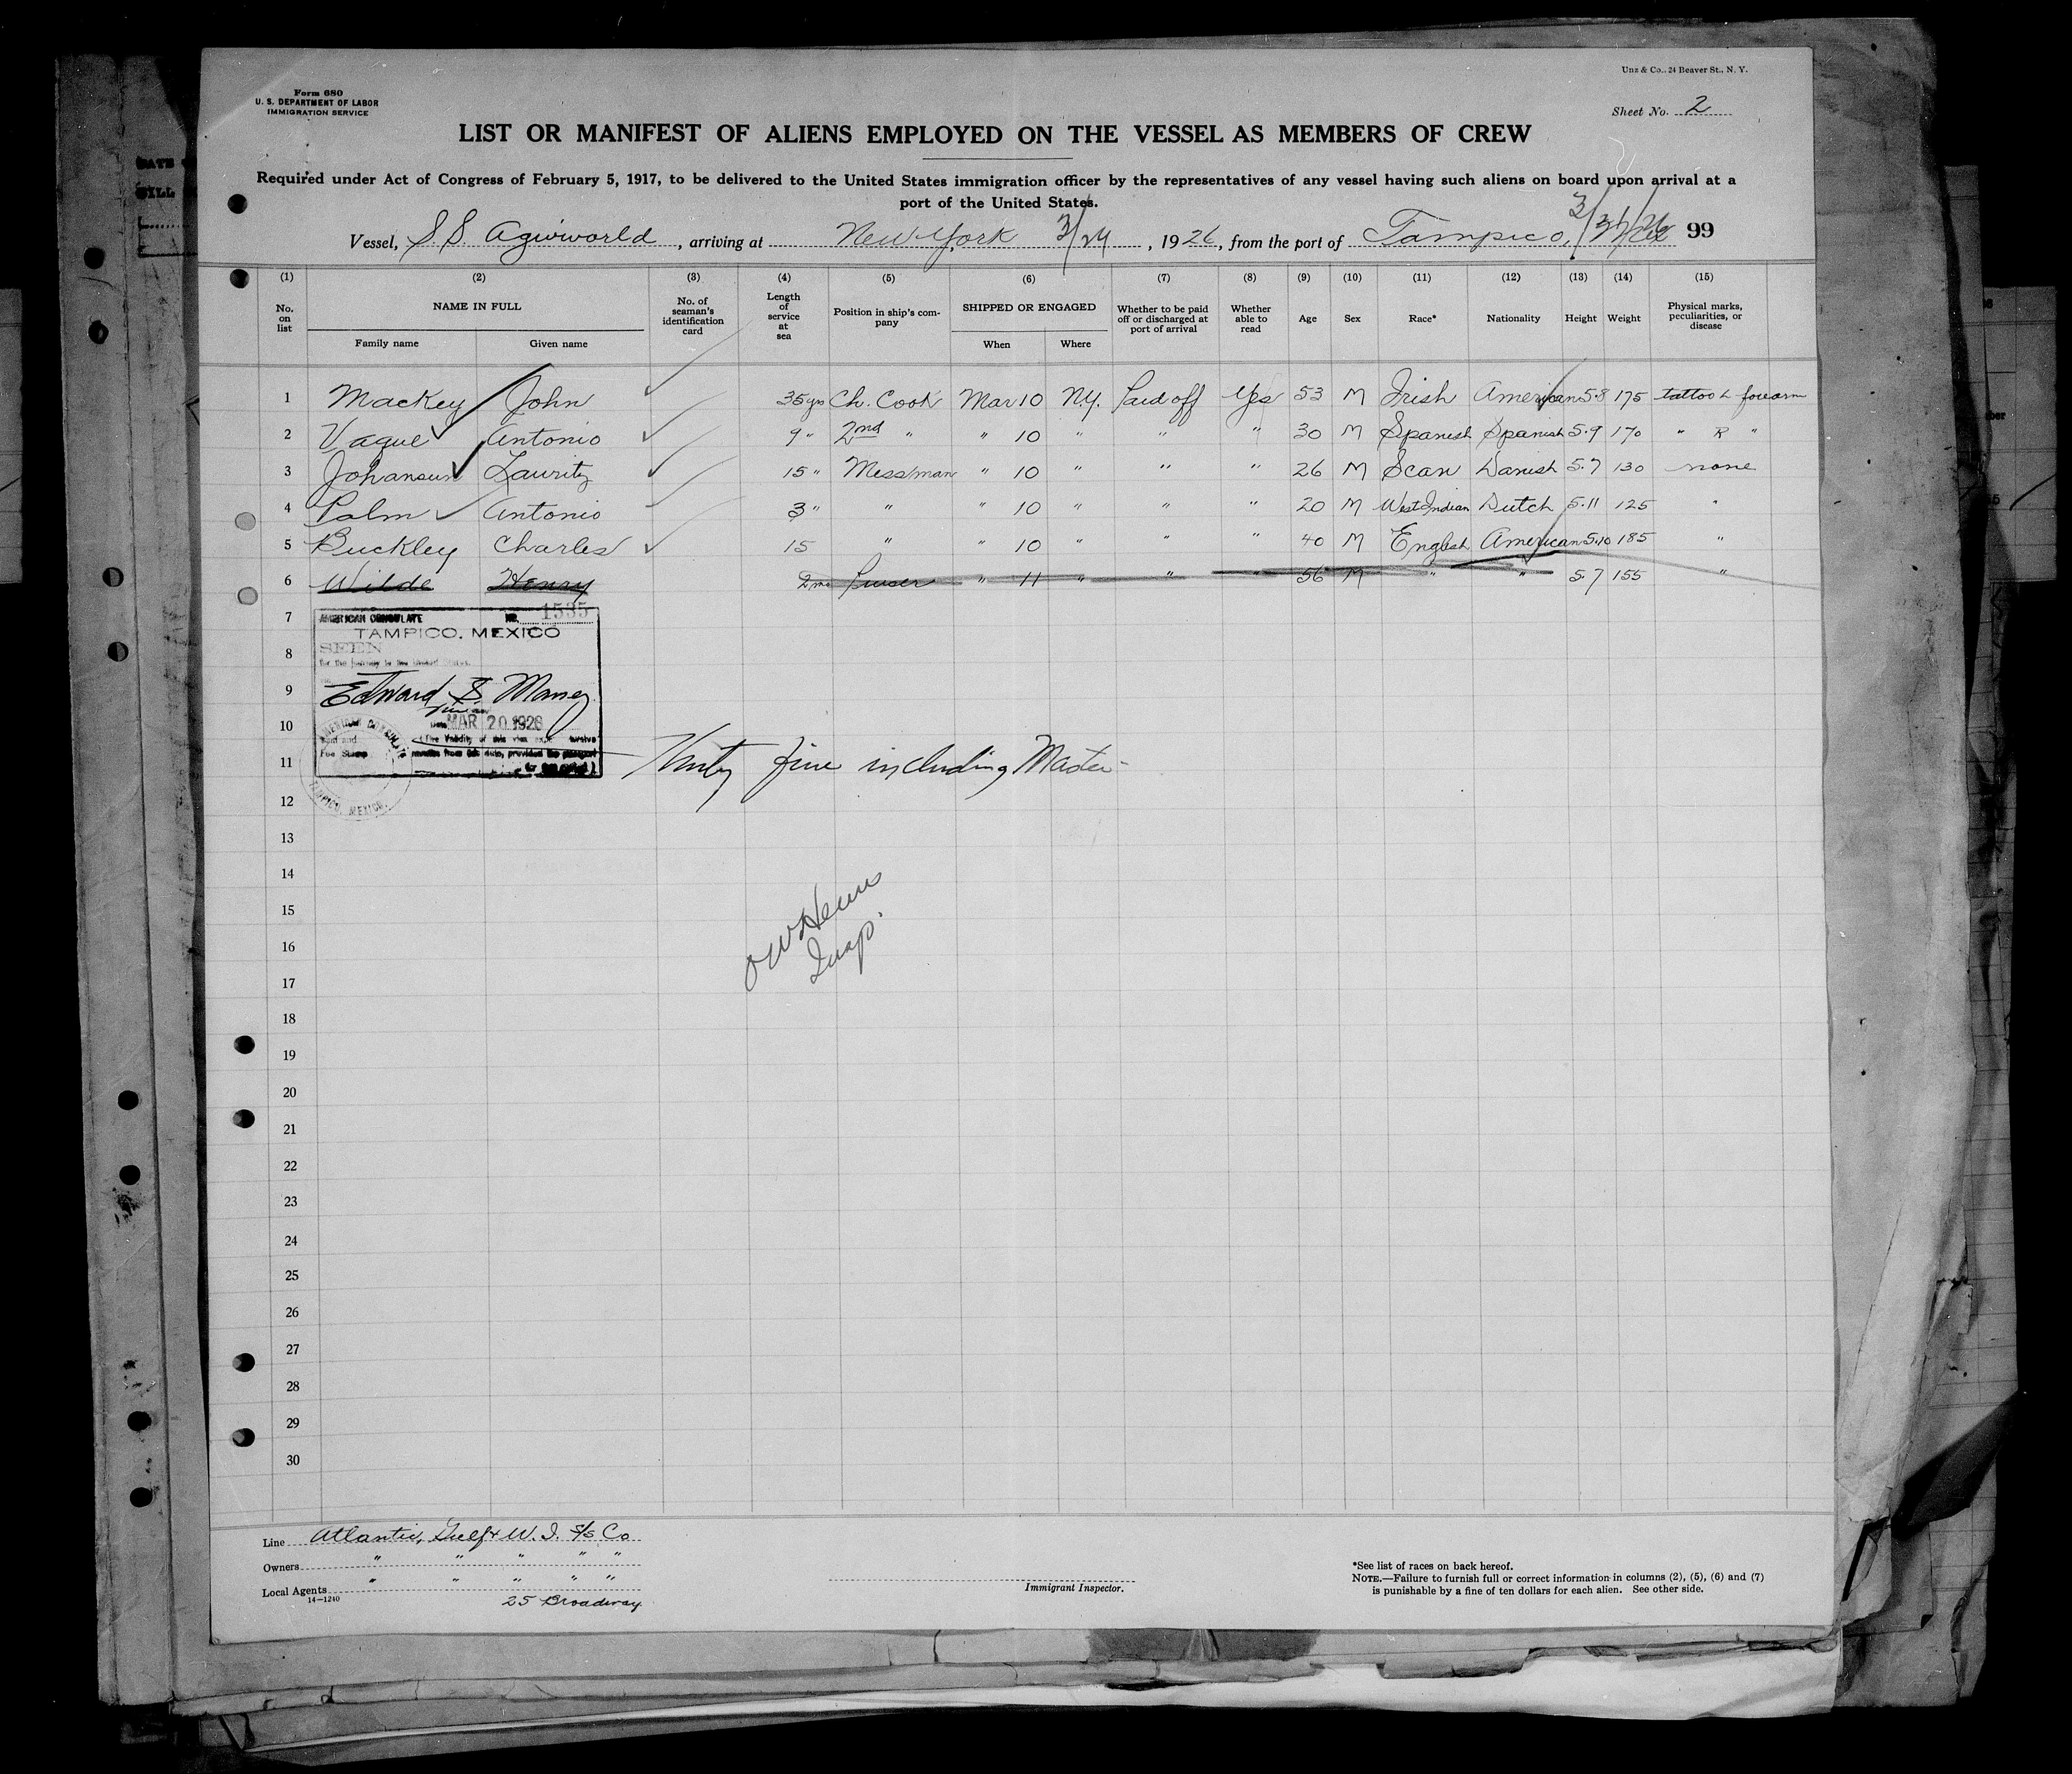 Unz & Co., 24 Beaver St., N. Y.
Form 680
U. S. DEPARTMENT OF LABOR
IMMIGRATION SERVICE
Sheet No. 2
LIST OR MANIFEST OF ALIENS EMPLOYED ON THE VESSEL AS MEMBERS OF CREW
Required under Act of Congress of February 5, 1917, to be delivered to the United States immigration officer by the representatives of any vessel having such aliens on board upon arrival at a
port of the United States.
Vessel, S.S. Agwiworld, arriving at New York 3/24, 1926, from the port of Tampico, 99
(1) (2) (3) (4) (5) (6) (7) (8) (9) (10) (11) (12) (13) (14) (15)
No. on list NAME IN FULL Family name Given name No. of seaman's identification card Length of service at sea Position in ship's company SHIPPED OR ENGAGED When Where Whether to be paid off or discharged at port of arrival Whether able to read Age Sex Race* Nationality Height Weight Physical marks, peculiarities, or disease
1 Mackey John 35 yrs Ch. Cook Mar 10 N.Y. Paid off Yes 53 M Irish American 5.8 175 tattoo L forearm
2 Vaque Antonio 9 " 2nd " " 10 " " " 30 M Spanish Spanish 5.9 170 " R "
3 Johansen Lauritz 15 " Messman " 10 " " " 26 M Scan Danish 5.7 130 none
4 Palm Antonio 3 " " " 10 " " " 20 M West Indian Dutch 5.11 125 "
5 Buckley Charles 15 " " 10 " " " 40 M English American 5.10 185 "
6 Wilde Henry 2 mo " 11 " " " 56 M " " 5.7 155 "
7
AMERICAN CONSULATE NO. 1535
TAMPICO, MEXICO
8
SEEN
For the journey to the United States.
9
Edward S. Maney
10
Date MAR 20 1926
11
AMERICAN CONSULATE
TAMPICO, MEXICO.
five including Master
12
13
14
15
16
Insp.
17
18
19
20
21
22
23
24
25
26
27
28
29
30
Line Atlantic, Gulf & W. I. S/S Co
Owners " " " " "
Local Agents " " " " "
14—1240
25 Broadway
Immigrant Inspector.
*See list of races on back hereof.
NOTE.—Failure to furnish full or correct information in columns (2), (5), (6) and (7)
is punishable by a fine of ten dollars for each alien. See other side.